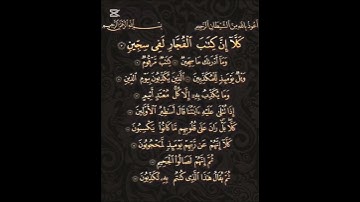 أعوذ بالله من الشيطان الرجيم بسم الله الرحمن الرحيم
كَلَّآ إِنَّ كِتَٰبَ ٱلْفُجَّارِ لَفِى سِجِّينٍ
وَمَآ أَدْرَىٰكَ مَا سِجِّينٌ كِتَٰبٌ مَّرْقُومٌ
وَيْلٌ يَوْمَئِذٍ لِّلْمُكَذِّبِينَ ٱلَّذِينَ يُكَذِّبُونَ بِيَوْمِ ٱلدِّينِ
وَمَا يُكَذِّبُ بِهِۦٓ إِلَّا كُلُّ مُعْتَدٍ أَثِيمٍ
إِذَا تُتْلَىٰ عَلَيْهِ ءَايَٰتُنَا قَالَ أَسَٰطِيرُ ٱلْأَوَّلِينَ
كَلَّا بَلْ رَانَ عَلَىٰ قُلُوبِهِم مَّا كَانُوا۟ يَكْسِبُونَ
كَلَّآ إِنَّهُمْ عَن رَّبِّهِمْ يَوْمَئِذٍ لَّمَحْجُوبُونَ
ثُمَّ إِنَّهُمْ لَصَالُوا۟ ٱلْجَحِيمِ
ثُمَّ يُقَالُ هَٰذَا ٱلَّذِى كُنتُم بِهِۦ تُكَذِّبُونَ